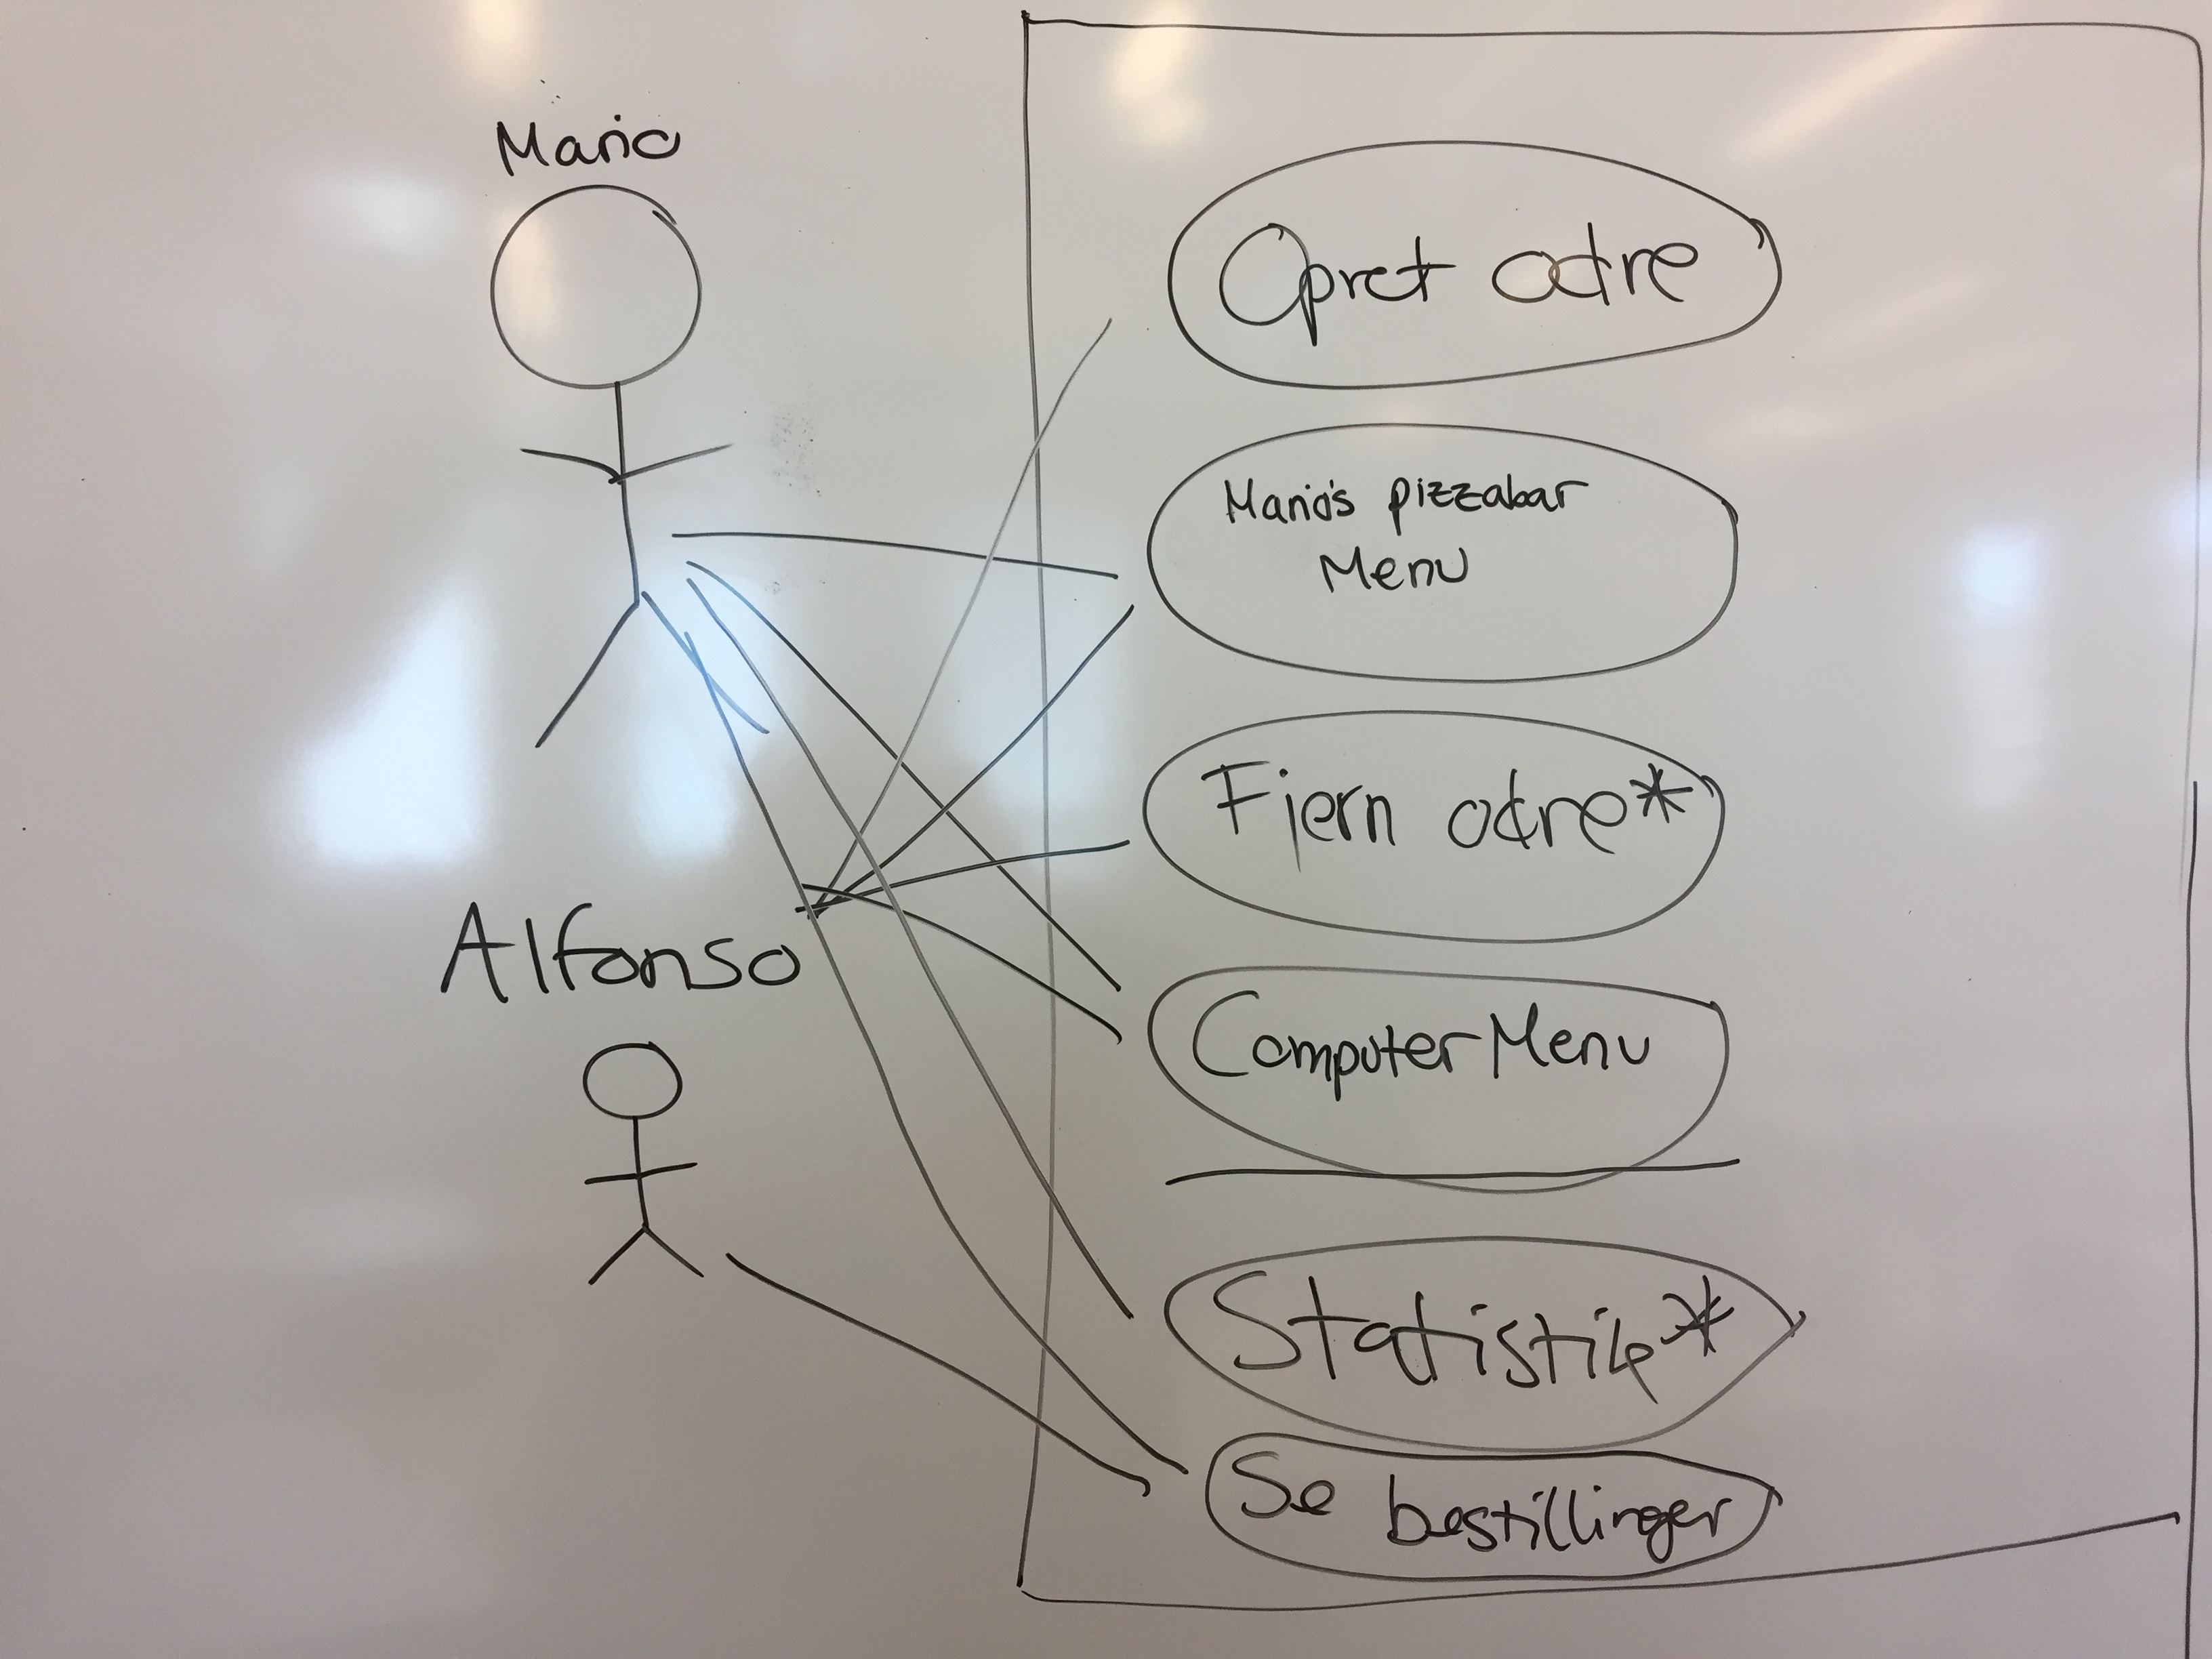 Mario
Opret odre
Mario's pizzabar
Menu
Fjern odre*
Alfonso
Computer Menu
Statistik*
Se bestillinger